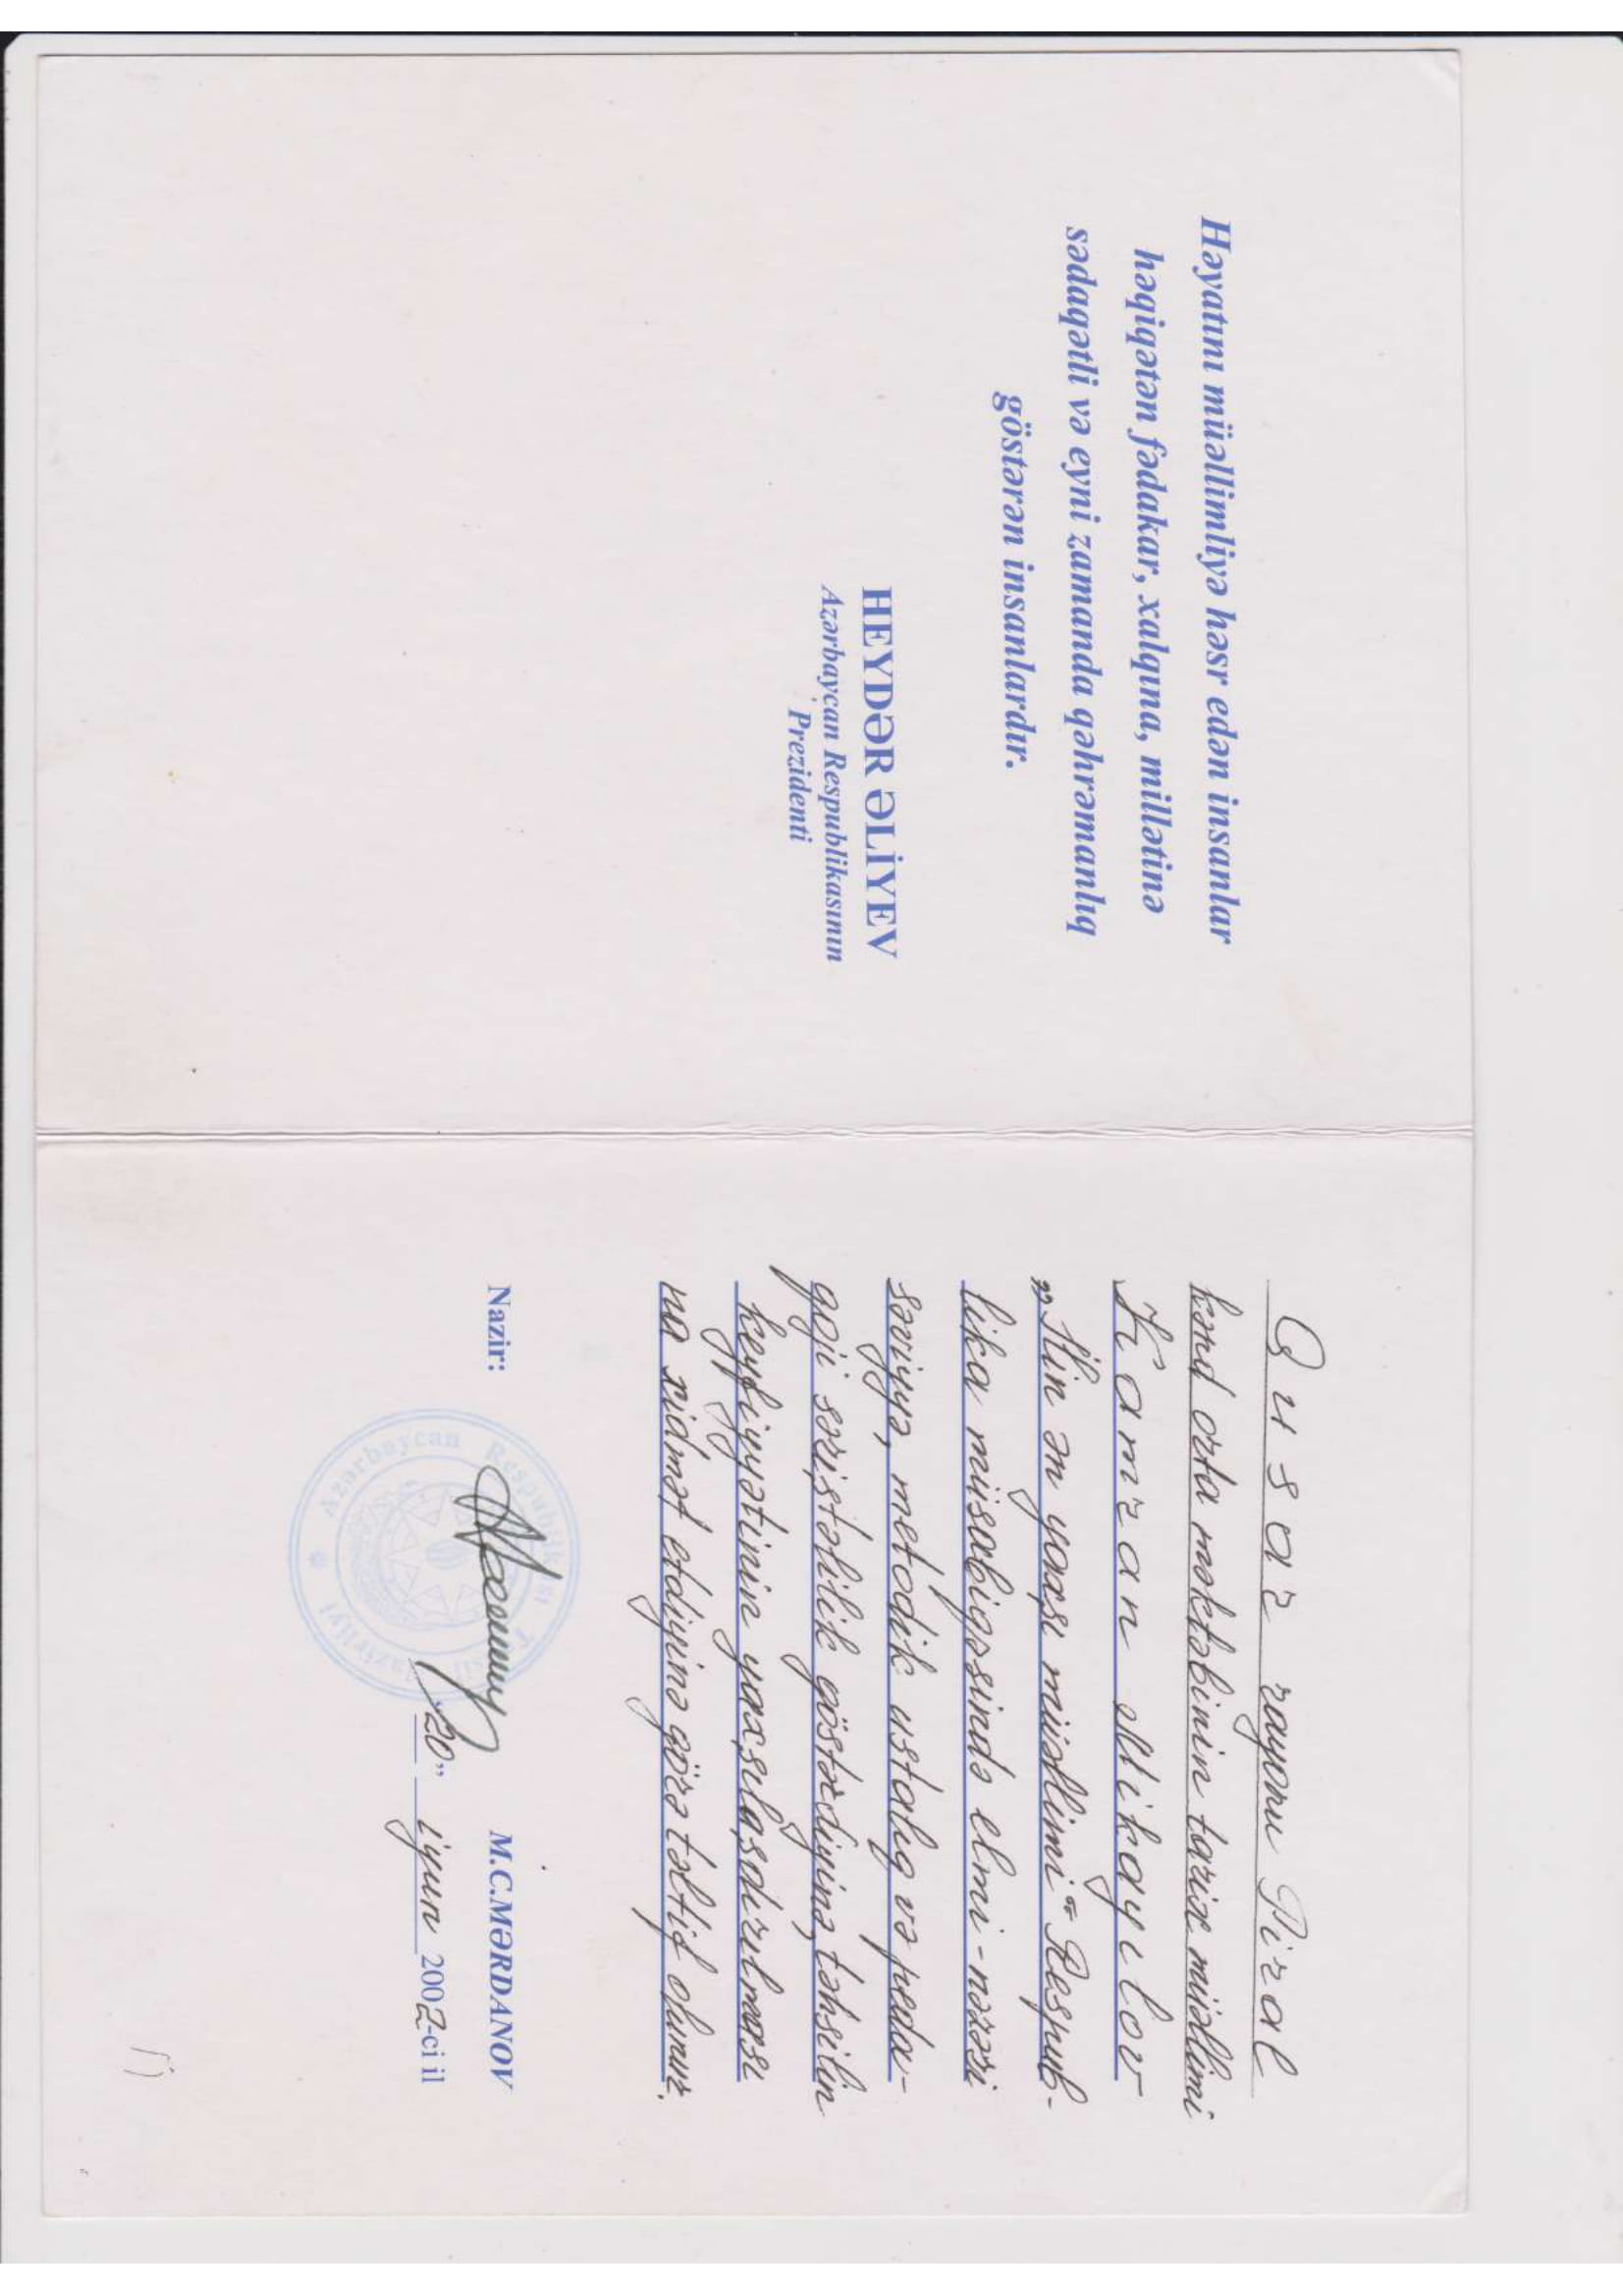 Həyatını müəllimliyə həsr edən insanlar
həqiqətən fədakar, xalqına, millətinə
sədaqətli və eyni zamanda qəhrəmanlıq
göstərən insanlardır.
HEYDƏR ƏLİYEV
Azərbaycan Respublikasının
Prezidenti
Qusar rayonu Piral
kənd orta məktəbinin tarix müəllimi
Kamran Mikayılov
„İlin ən yaxşı müəllimi“ Respub-
lika müsabiqəsində elmi-nəzəri
səviyyə, metodik ustalıq və peda-
qoji səriştəlilik göstərdiyinə, təhsilin
keyfiyyətinin yaxşılaşdırılması
na xidmət etdiyinə görə təltif olunur.
Nazir: M.C.MƏRDANOV
Azərbaycan Respublikası Təhsil Nazirliyi
„20” iyun 2002-ci il